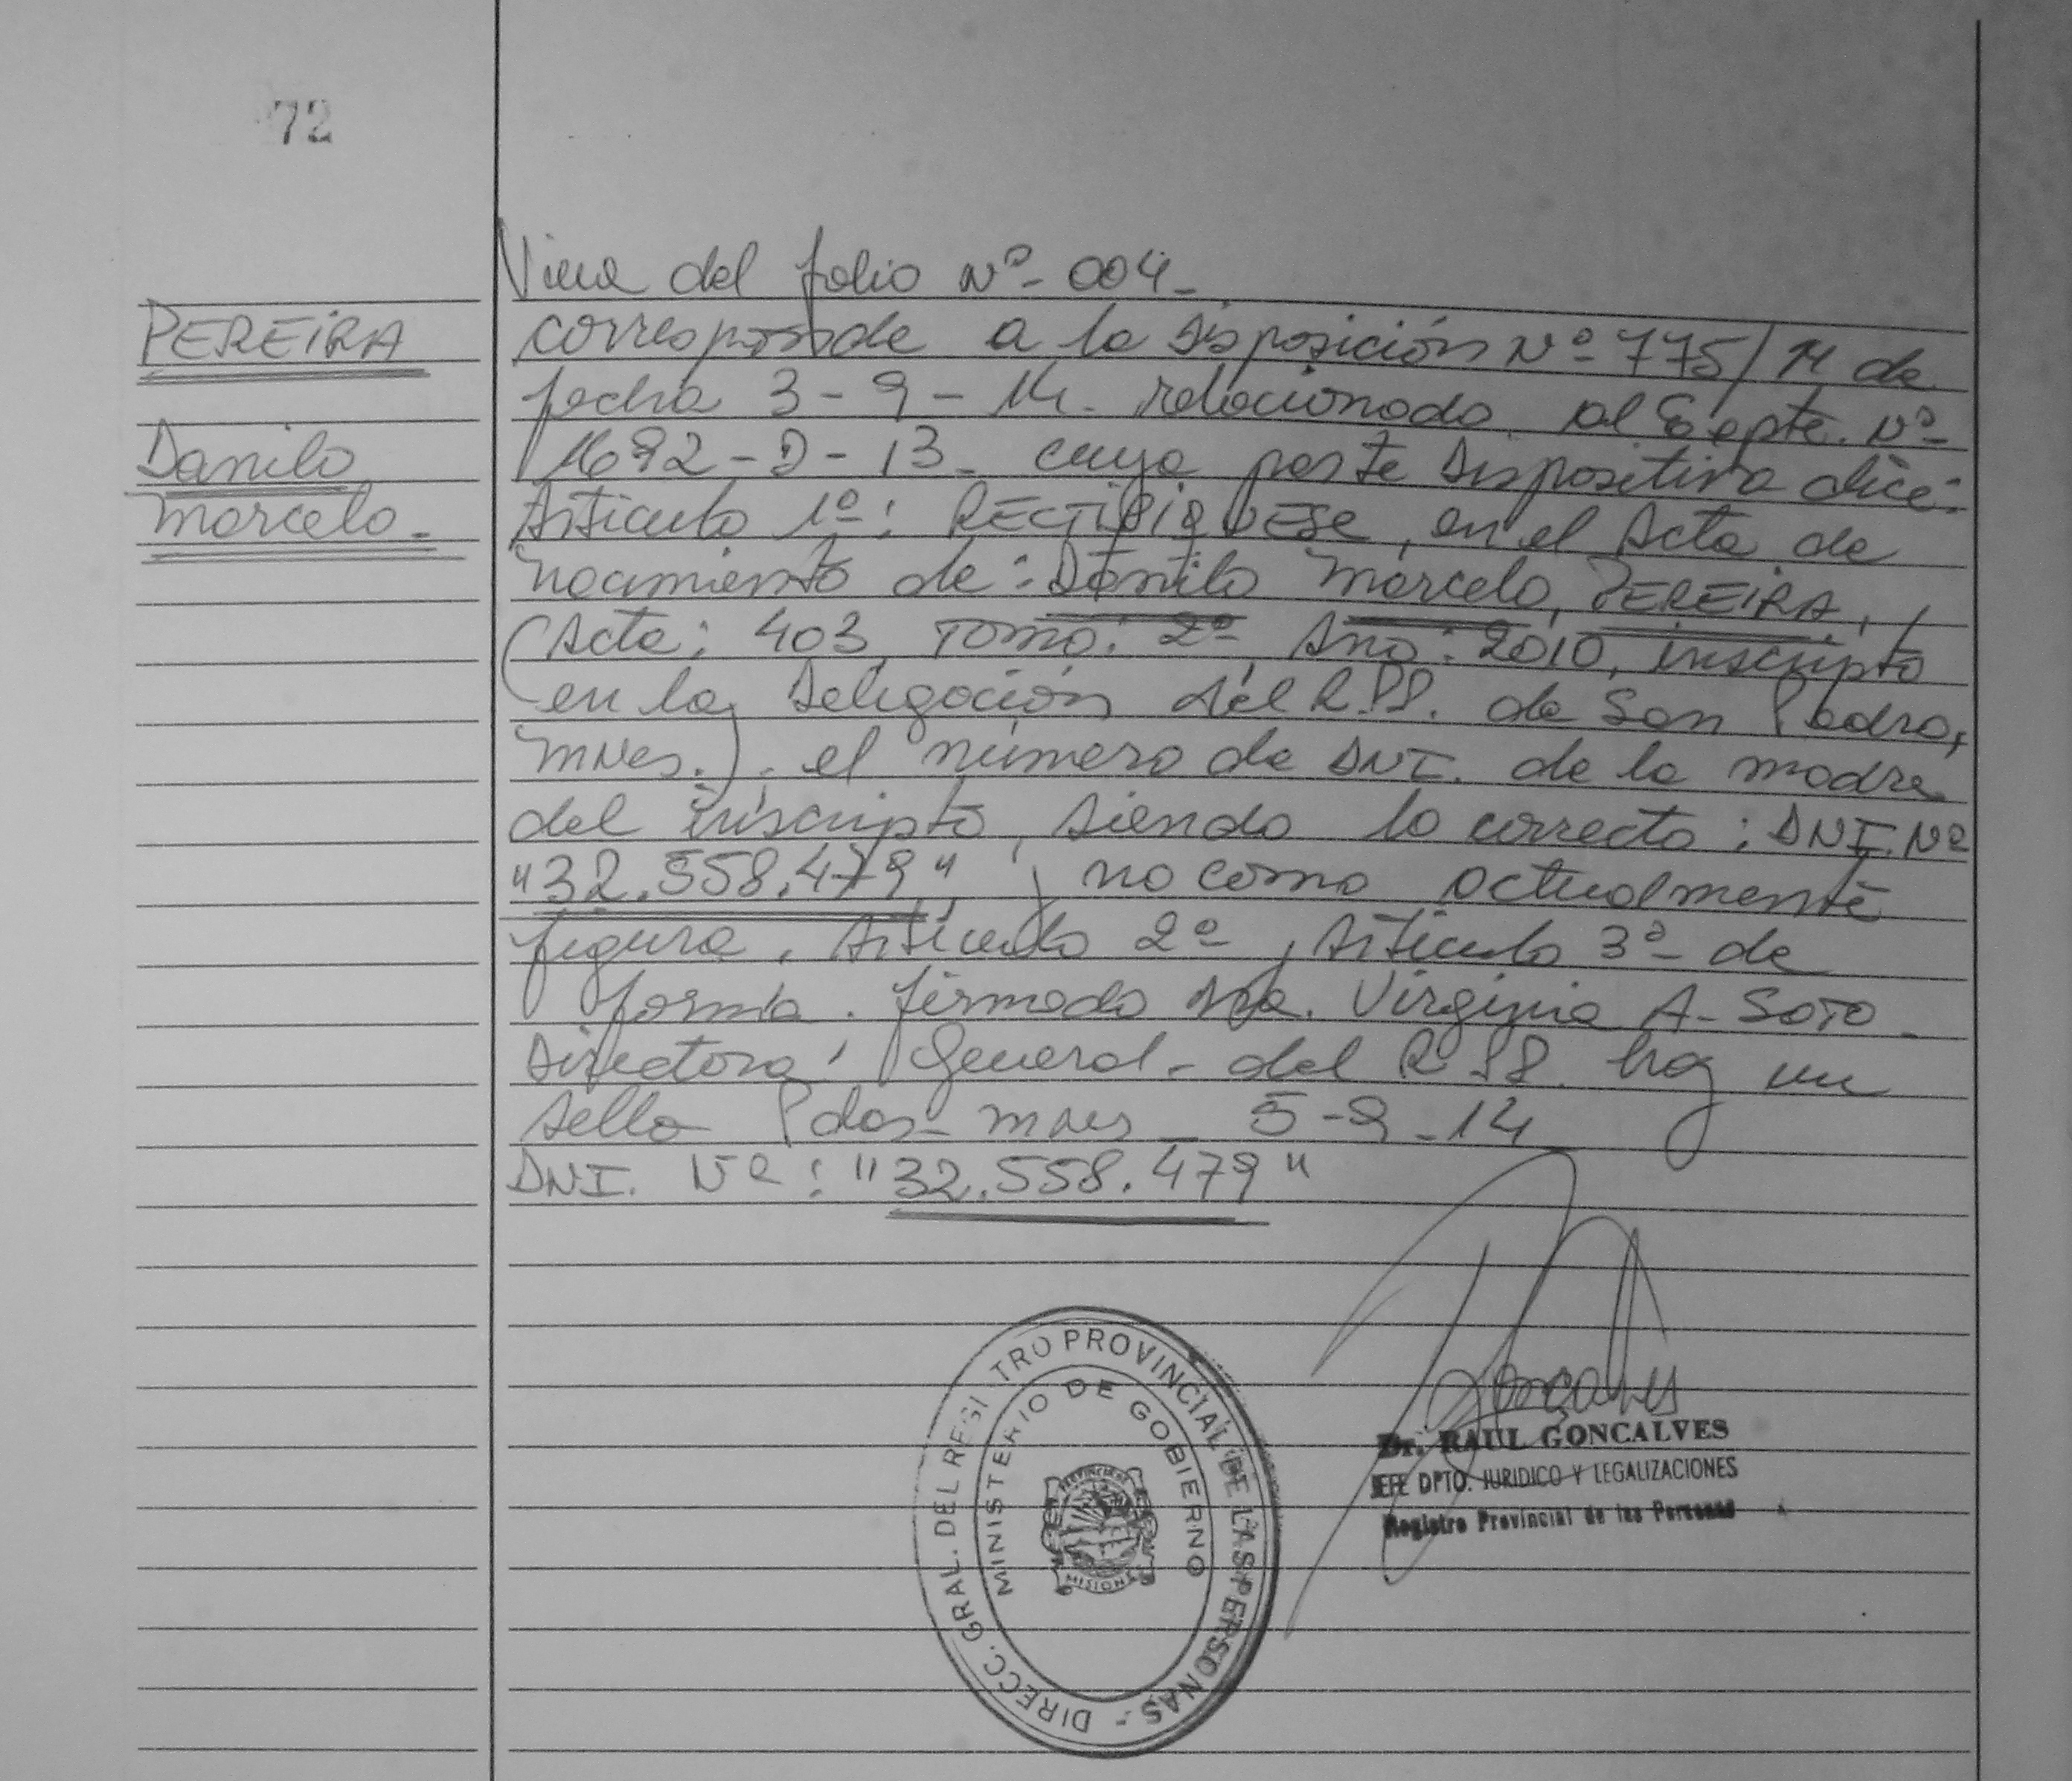 72
Viene del folio Nº- 004-
PEREIRA
Danilo
Marcelo.-
corresponde a la Disposición Nº-775/14 de
fecha 3-9-14. relacionado al Expte. Nº-
1692-D-13- cuya parte Dispositiva dice:
Artículo 1º: RECTIFIQUESE, en el Acta de
Nacimiento de: Danilo Marcelo, PEREIRA,
(Acta: 403, Tomo: 2º Año: 2010, inscripto
en la Delegación del R.P.P. de San Pedro,
Mnes.). el número de DNI. de la madre
del inscripto, siendo lo correcto: DNI. Nº
"32.558.479" y no como actualmente
figura. Artículo 2º y Artículo 3º- de
forma. firmado Virginia A- SOTO-
Directora General- del R.P.P. hay un
sello Pdas- Mnes- 5-9-14
DNI. Nº: "32.558.479"
Goncalves
Dr. RAUL GONCALVES
JEFE DPTO. JURIDICO Y LEGALIZACIONES
Registro Provincial de las Personas
DIRECC. GRAL. DEL REGISTRO PROVINCIAL DE LAS PERSONAS -
MINISTERIO DE GOBIERNO
MISIONES